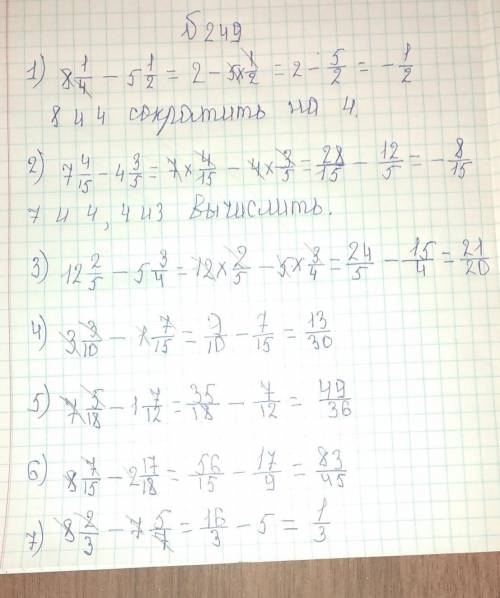 №249
1) 8 1/4 - 5 1/2 = 2 - 5 × 1/2 = 2 - 5/2 = - 1/2
8 и 4 сократить на 4.
2) 7 4/15 - 4 3/5 = 7 × 4/15 - 4 × 3/5 = 28/15 - 12/5 = - 8/15
7 и 4, 4 и 3 вычислить.
3) 12 2/5 - 5 3/4 = 12 × 2/5 - 5 × 3/4 = 24/5 - 15/4 = 21/20
4) 3 3/10 - 1 7/15 = 9/10 - 7/15 = 13/30
5) 7 5/18 - 1 7/12 = 35/18 - 7/12 = 49/36
6) 8 7/15 - 2 17/18 = 56/15 - 17/9 = 83/45
7) 8 2/3 - 7 5/7 = 16/3 - 5 = 1/3